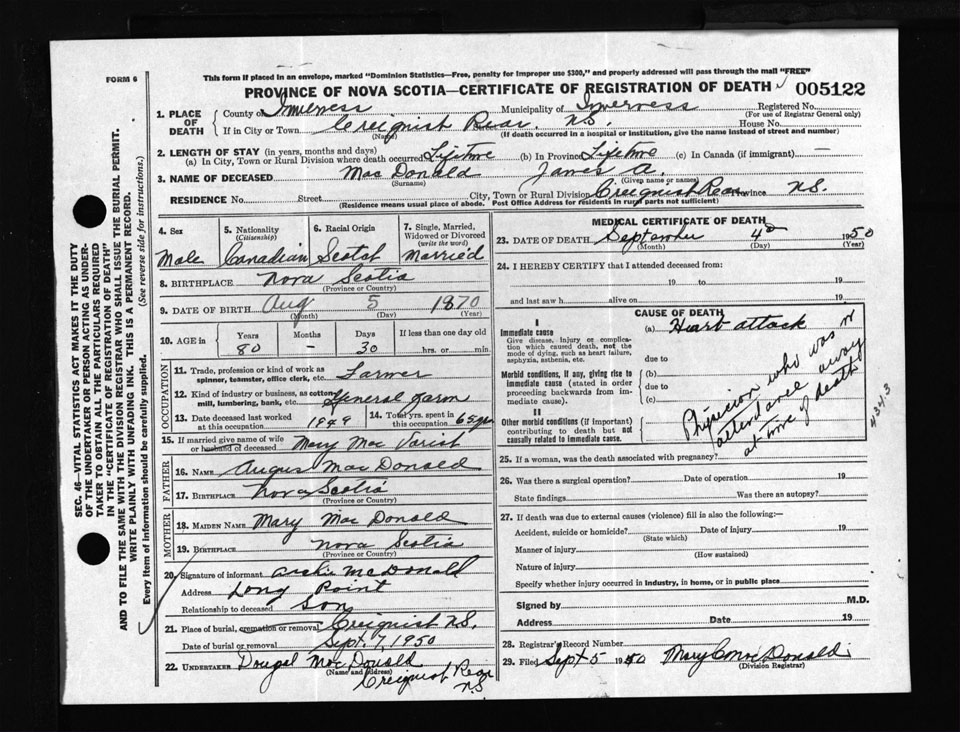 FORM 6
This form if placed in an envelope, marked "Dominion Statistics—Free, penalty for improper use $300," and properly addressed will pass through the mail "FREE"
PROVINCE OF NOVA SCOTIA—CERTIFICATE OF REGISTRATION OF DEATH 005122
1. PLACE OF DEATH County of Inverness Municipality of Inverness Registered No.
(For use of Registrar General only)
If in City or Town Creignish Rear. N.S. House No.
(Name) (If death occurred in a hospital or institution, give the name instead of street and number)
2. LENGTH OF STAY (in years, months and days)
(a) In City, Town or Rural Division where death occurred Lifetime (b) In Province Lifetime (c) In Canada (if immigrant) —
3. NAME OF DECEASED MacDonald James A.
(Surname) (Given name or names)
RESIDENCE No. Street City, Town or Rural Division Creignish Rear Province N.S.
(Residence means usual place of abode. Post Office Address for residents in rural parts not sufficient)
4. Sex
Male
5. Nationality
(Citizenship)
Canadian
6. Racial Origin
Scotch
7. Single, Married, Widowed or Divorced
(write the word)
Married
8. BIRTHPLACE Nova Scotia
(Province or Country)
9. DATE OF BIRTH Aug 5 1870
(Month) (Day) (Year)
10. AGE in Years Months Days If less than one day old
80 - 30 hrs. or min.
OCCUPATION
11. Trade, profession or kind of work as
spinner, teamster, office clerk, etc. Farmer
12. Kind of industry or business, as cotton-
mill, lumbering, bank, etc. General farm
13. Date deceased last worked
at this occupation 1949
14. Total yrs. spent in
this occupation 65 yrs
15. If married give name of wife
or husband of deceased Mary Mac Varish
FATHER
16. NAME Angus MacDonald
17. BIRTHPLACE Nova Scotia
(Province or Country)
MOTHER
18. MAIDEN NAME Mary MacDonald
19. BIRTHPLACE Nova Scotia
(Province or Country)
20. Signature of informant Archie McDonald
Address Long Point
Relationship to deceased Son
21. Place of burial, cremation or removal Creignish N.S.
Date of burial or removal Sept. 7, 1950
22. UNDERTAKER Dougal MacDonald
(Name and address)
Creignish Rear
N.S
MEDICAL CERTIFICATE OF DEATH
23. DATE OF DEATH September 4th 1950
(Month) (Day) (Year)
24. I HEREBY CERTIFY that I attended deceased from:
19 to 19
and last saw h alive on 19
CAUSE OF DEATH
I
Immediate cause (a) Heart attack
Give disease, injury or complica-
tion which caused death, not the
mode of dying, such as heart failure,
asphyxia, asthenia, etc.
due to
Morbid conditions, if any, giving rise to (b)
immediate cause (stated in order due to
proceeding backwards from im-
mediate cause). (c)
II
Other morbid conditions (if important)
contributing to death but not
causally related to immediate cause.
Physician who was in
attendance away
at time of death
434.3
25. If a woman, was the death associated with pregnancy?
26. Was there a surgical operation? Date of operation 19
State findings Was there an autopsy?
27. If death was due to external causes (violence) fill in also the following:—
Accident, suicide or homicide? Date of injury 19
(State which)
Manner of injury
(How sustained)
Nature of injury
Specify whether injury occurred in industry, in home, or in public place
Signed by M.D.
Address Date 19
28. Registrar's Record Number
29. Filed Sept 5 1950 Mary C. MacDonald
(Division Registrar)
SEC. 46—VITAL STATISTICS ACT MAKES IT THE DUTY
OF THE UNDERTAKER OR PERSON ACTING AS UNDER-
TAKER TO OBTAIN ALL THE PARTICULARS REQUIRED
IN THE "CERTIFICATE OF REGISTRATION OF DEATH"
AND TO FILE THE SAME WITH THE DIVISION REGISTRAR WHO SHALL ISSUE THE BURIAL PERMIT.
WRITE PLAINLY WITH UNFADING INK. THIS IS A PERMANENT RECORD.
Every item of Information should be carefully supplied. (See reverse side for instructions.)